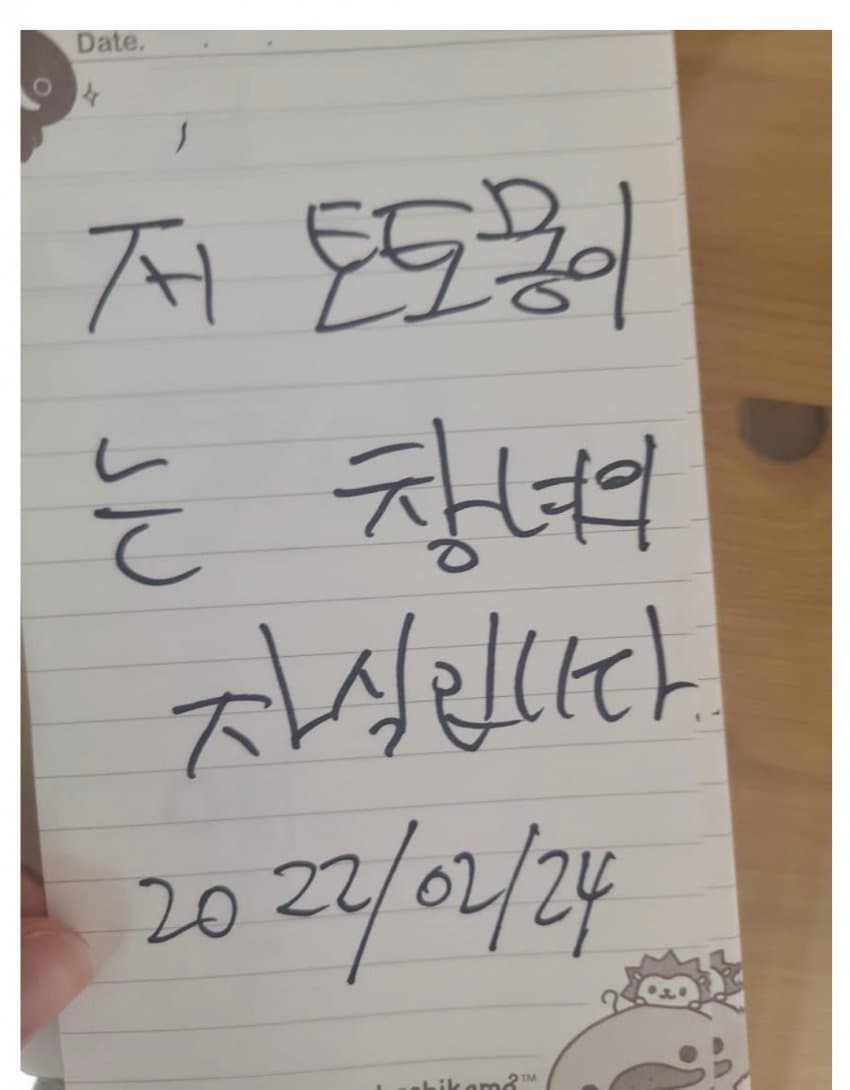 Date.
저 토토몽이
는 창녀의
자식입니다.
2022/02/24